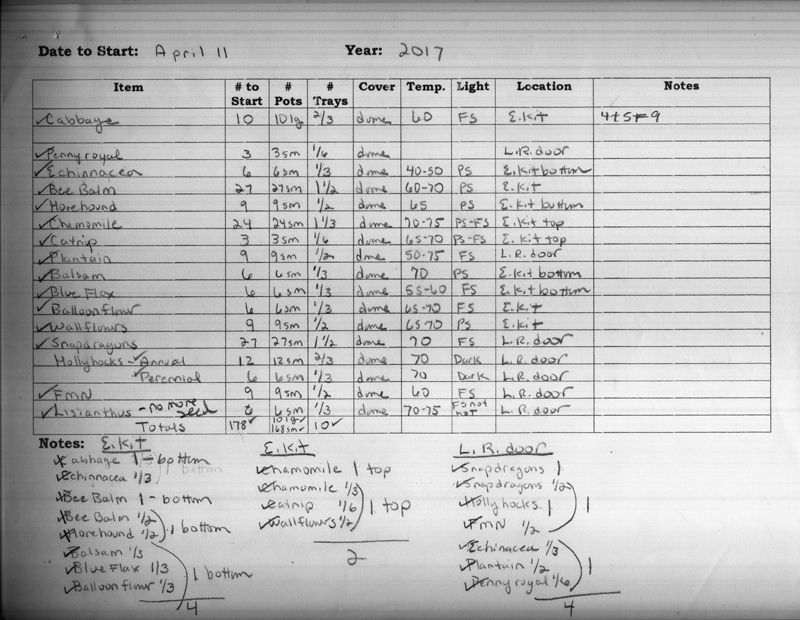 Date to Start: April 11 Year: 2017
Item # to Start # Pots # Trays Cover Temp. Light Location Notes
✓Cabbage 10 10 lg 2/3 dome 60 FS E.Kit 4+5=9
✓Pennyroyal 3 3sm 1/6 dome L.R. door
✓Echinnacea 6 6sm 1/3 dome 40-50 PS E.Kit bottum
✓Bee Balm 27 27sm 1 1/2 dome 60-70 PS E.Kit
✓Horehound 9 9sm 1/2 dome 65 PS E.Kit bottum
✓Chamomile 24 24sm 1 1/3 dome 70-75 PS-FS E.Kit top
✓Catnip 3 3sm 1/6 dome 65-70 PS-FS E. Kit top
✓Plantain 9 9sm 1/2 dome 50-75 FS L.R. door
✓Balsam 6 6sm 1/3 dome 70 PS E.Kit bottum
✓Blue Flax 6 6sm 1/3 dome 55-60 FS E.Kit bottum
✓Balloon flowr 6 6sm 1/3 dome 65-70 FS E.Kit
✓Wallflowrs 9 9sm 1/2 dome 65-70 PS E.Kit
✓Snapdragons 27 27sm 1 1/2 dome 70 FS L.R. door
Hollyhocks - ✓Annual 12 12sm 2/3 dome 70 Dark L.R. door
✓Perennial 6 6sm 1/3 70 Dark L.R. door
✓FMN 9 9sm 1/2 dome 60 FS L.R. door
✓Lisianthus - no more seed 6 6sm 1/3 dome 70-75 FS not hot L.R. door
Totals 178✓ 10 lg✓ 168sm✓ 10✓
Notes: E.Kit
Cabbage 1 - bottum
Echinnacea 1/3 bottum
Bee Balm 1 - bottum
Bee Balm 1/2
Horehound 1/2 1 bottum
✓Balsam 1/3
✓Blue Flax 1/3 1 bottum
✓Balloon flowr 1/3
4
E.Kit
✓Chamomile 1 top
✓Chamomile 1/3
✓Catnip 1/6 1 top
✓Wallflowrs 1/2
2
L.R. door
✓Snapdragons 1
✓Snapdragons 1/2
✓Hollyhocks 1 1
✓FMN 1/2
✓Echinacea 1/3
✓Plantain 1/2 1
✓Pennyroyal 1/6
4